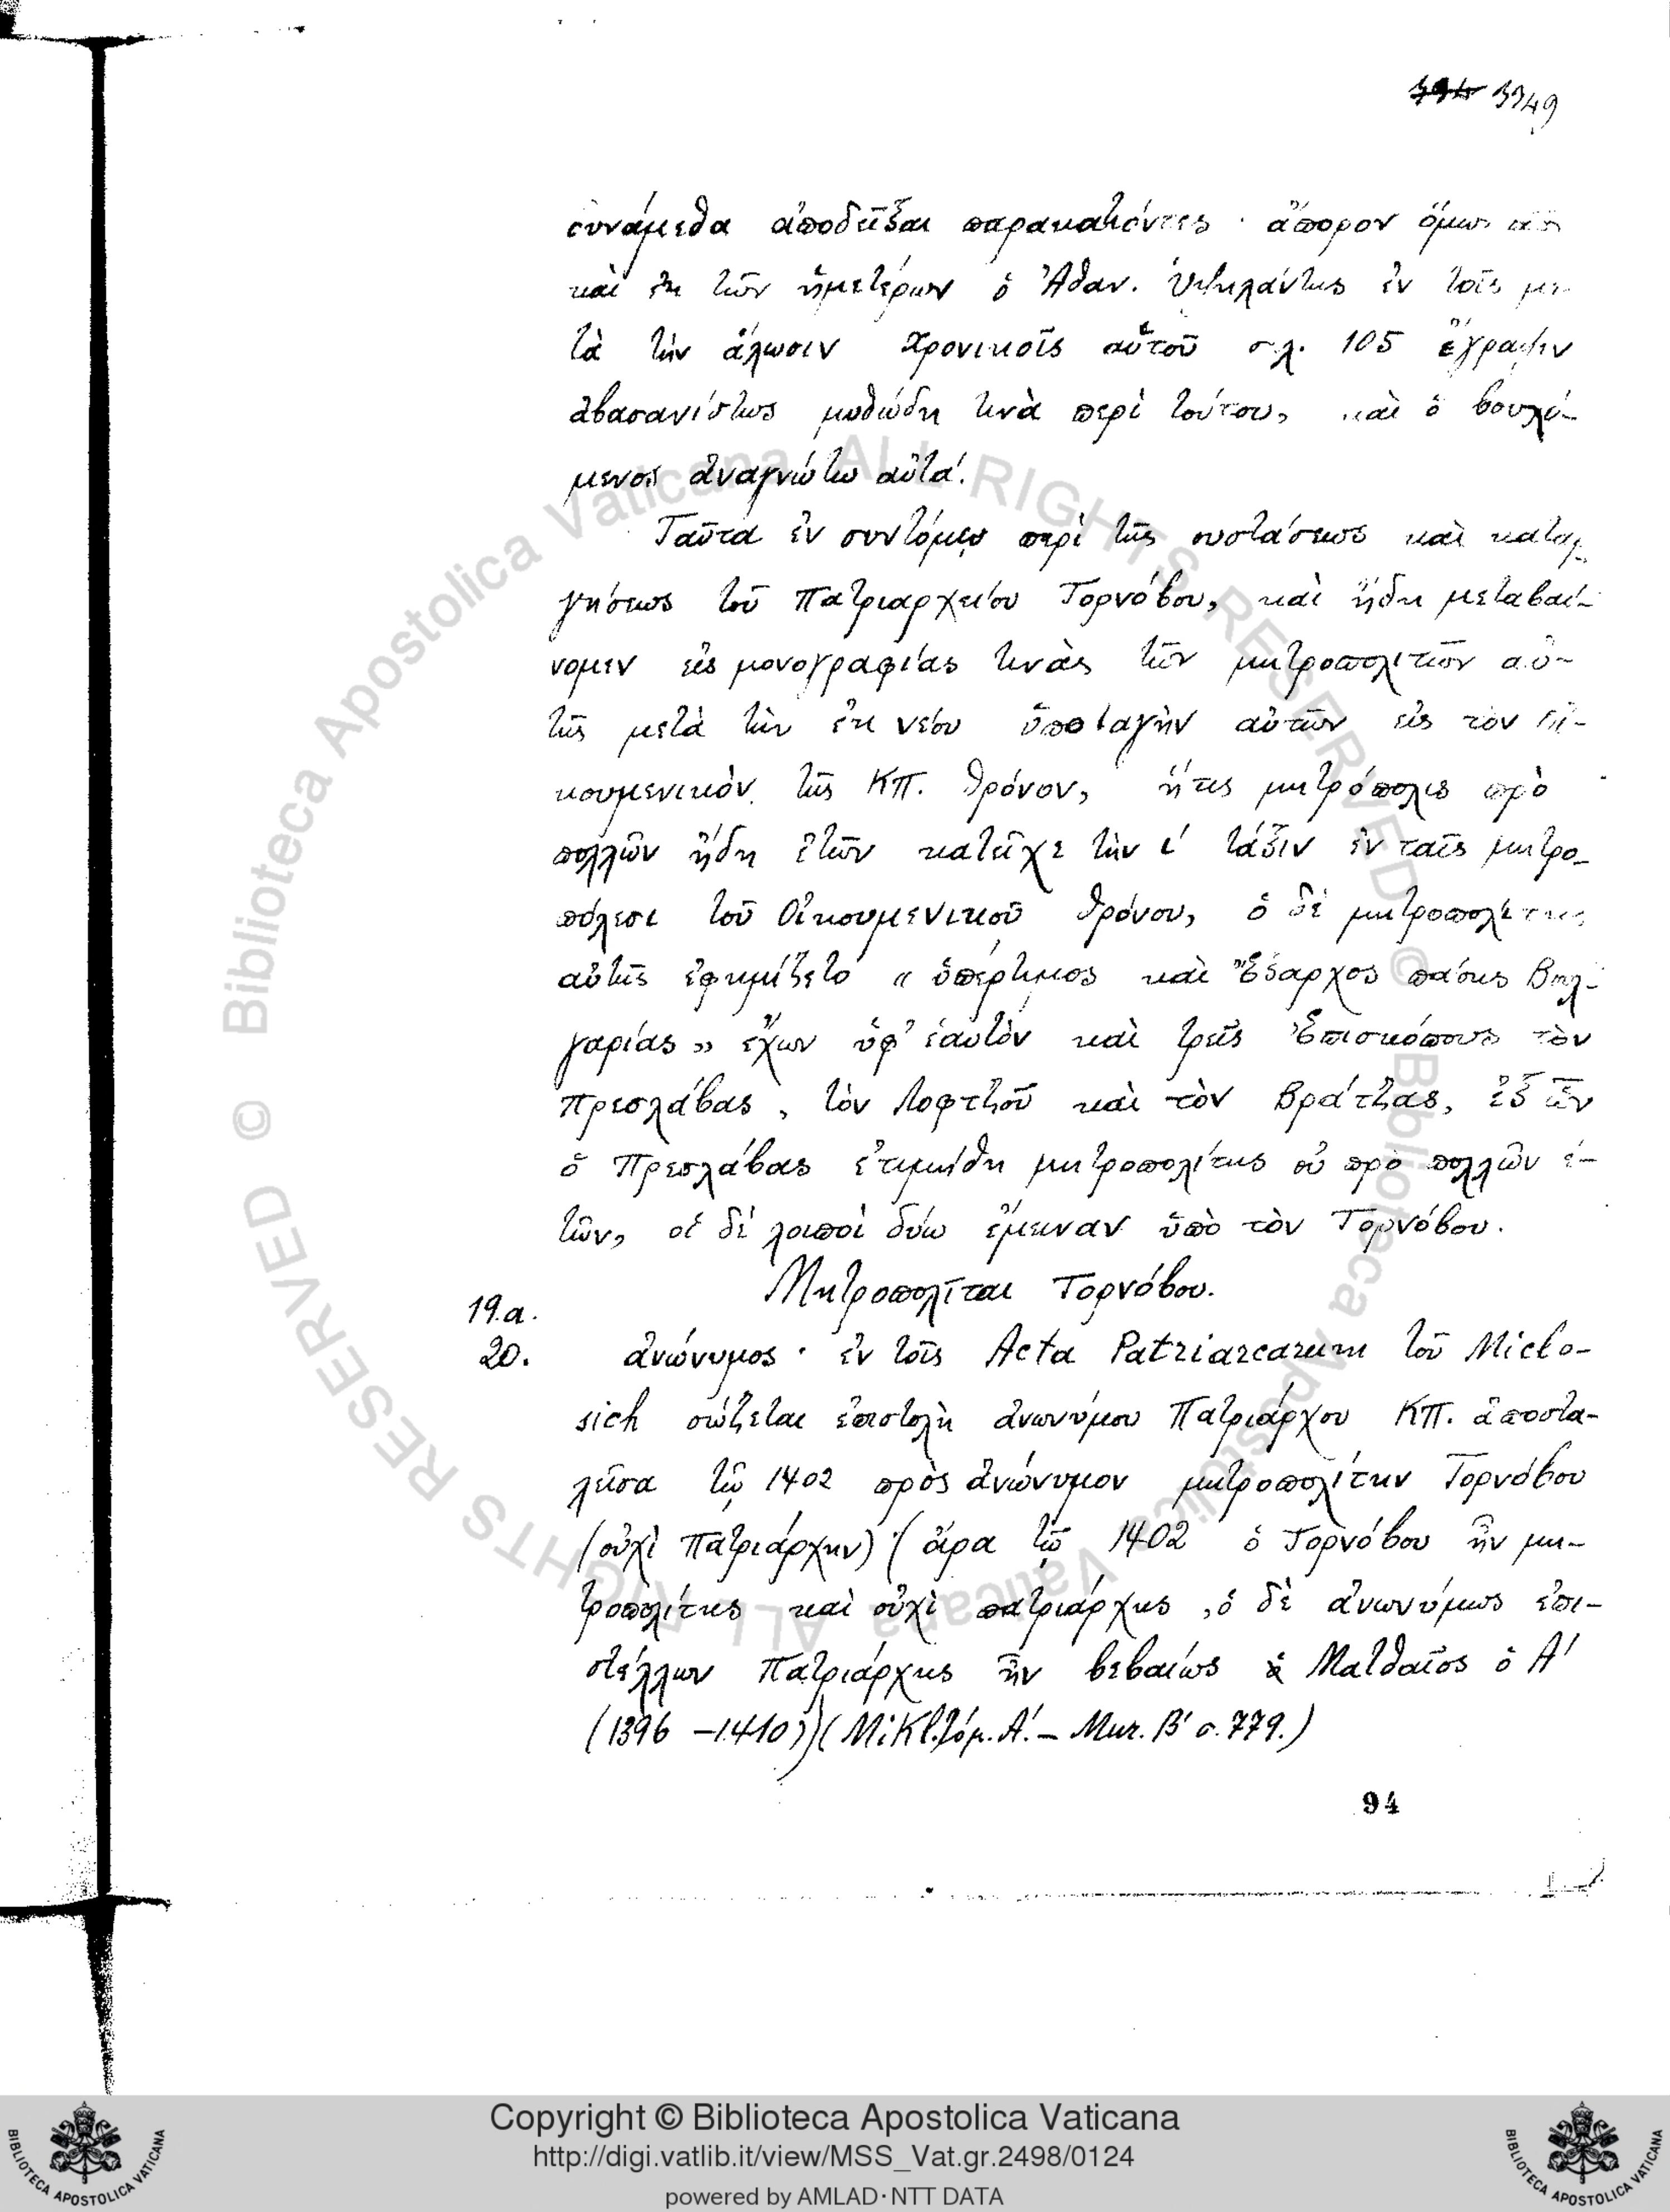 3349
δυνάμεθα ἀποδεῖξαι παρακατιόντες · ἄπορον ὅμως
καὶ ἐκ τῶν ἡμετέρων ὁ Ἀθαν. Ὑψηλάντης ἐν τοῖς με-
τὰ τὴν ἅλωσιν χρονικοῖς αὑτοῦ σελ. 105 ἔγραψεν
ἀβασανίστως μυθώδη τινὰ περὶ τούτου, καὶ ὁ βουλό-
μενος ἀναγνώτω αὐτά.
Ταῦτα ἐν συντόμῳ περὶ τῆς συστάσεως καὶ καταρ-
γήσεως τοῦ Πατριαρχείου Τορνόβου, καὶ ἤδη μεταβαί-
νομεν εἰς μονογραφίας τινὰς τῶν μητροπολιτῶν αὐ-
τῆς μετὰ τὴν ἐκ νέου ὑποταγὴν αὐτῶν εἰς τὸν Οἰ-
κουμενικὸν τῆς ΚΠ. θρόνον, ἥτις μητρόπολις πρὸ
πολλῶν ἤδη ἐτῶν κατεῖχε τὴν ι΄ τάξιν ἐν ταῖς μητρο-
πόλεσι τοῦ Οἰκουμενικοῦ θρόνου, ὁ δὲ μητροπολίτης
αὐτῆς ἐφημίζετο « ὑπέρτιμος καὶ Ἔξαρχος πάσης Βουλ-
γαρίας » ἔχων ὑφ' ἑαυτὸν καὶ τρεῖς Ἐπισκόπους τὸν
Πρεσλάβας, τὸν Λοφτζοῦ καὶ τὸν Βράτζας, ἐξ ὧν
ὁ Πρεσλάβας ἐτιμήθη μητροπολίτης οὐ πρὸ πολλῶν ἐ-
τῶν, οἱ δὲ λοιποὶ δύω ἔμειναν ὑπὸ τὸν Τορνόβου.
Μητροπολῖται Τορνόβου.
19.α.
20. ἀνώνυμος · ἐν τοῖς Acta Patriarcarum τοῦ Miclo-
sich σώζεται ἐπιστολὴ ἀνωνύμου Πατριάρχου ΚΠ. ἀποστα-
λεῖσα τῷ 1402 πρὸς ἀνώνυμον μητροπολίτην Τορνόβου
(οὐχὶ Πατριάρχην) (ἄρα τῷ 1402 ὁ Τορνόβου ἦν μη-
τροπολίτης καὶ οὐχὶ πατριάρχης, ὁ δὲ ἀνωνύμως ἐπι-
στέλλων Πατριάρχης ἦν βεβαίως ὁ Ματθαῖος ὁ Α΄
(1396 – 1410)) (Mikl. τόμ. Α΄. –  Β΄ σ. 779.)
94
© Biblioteca Apostolica Vaticana ALL RIGHTS RESERVED © Biblioteca Apostolica Vaticana ALL RIGHTS RESERVED
Copyright © Biblioteca Apostolica Vaticana
http://digi.vatlib.it/view/MSS_Vat.gr.2498/0124
powered by AMLAD·NTT DATA
BIBLIOTECA APOSTOLICA VATICANA
BIBLIOTECA APOSTOLICA VATICANA